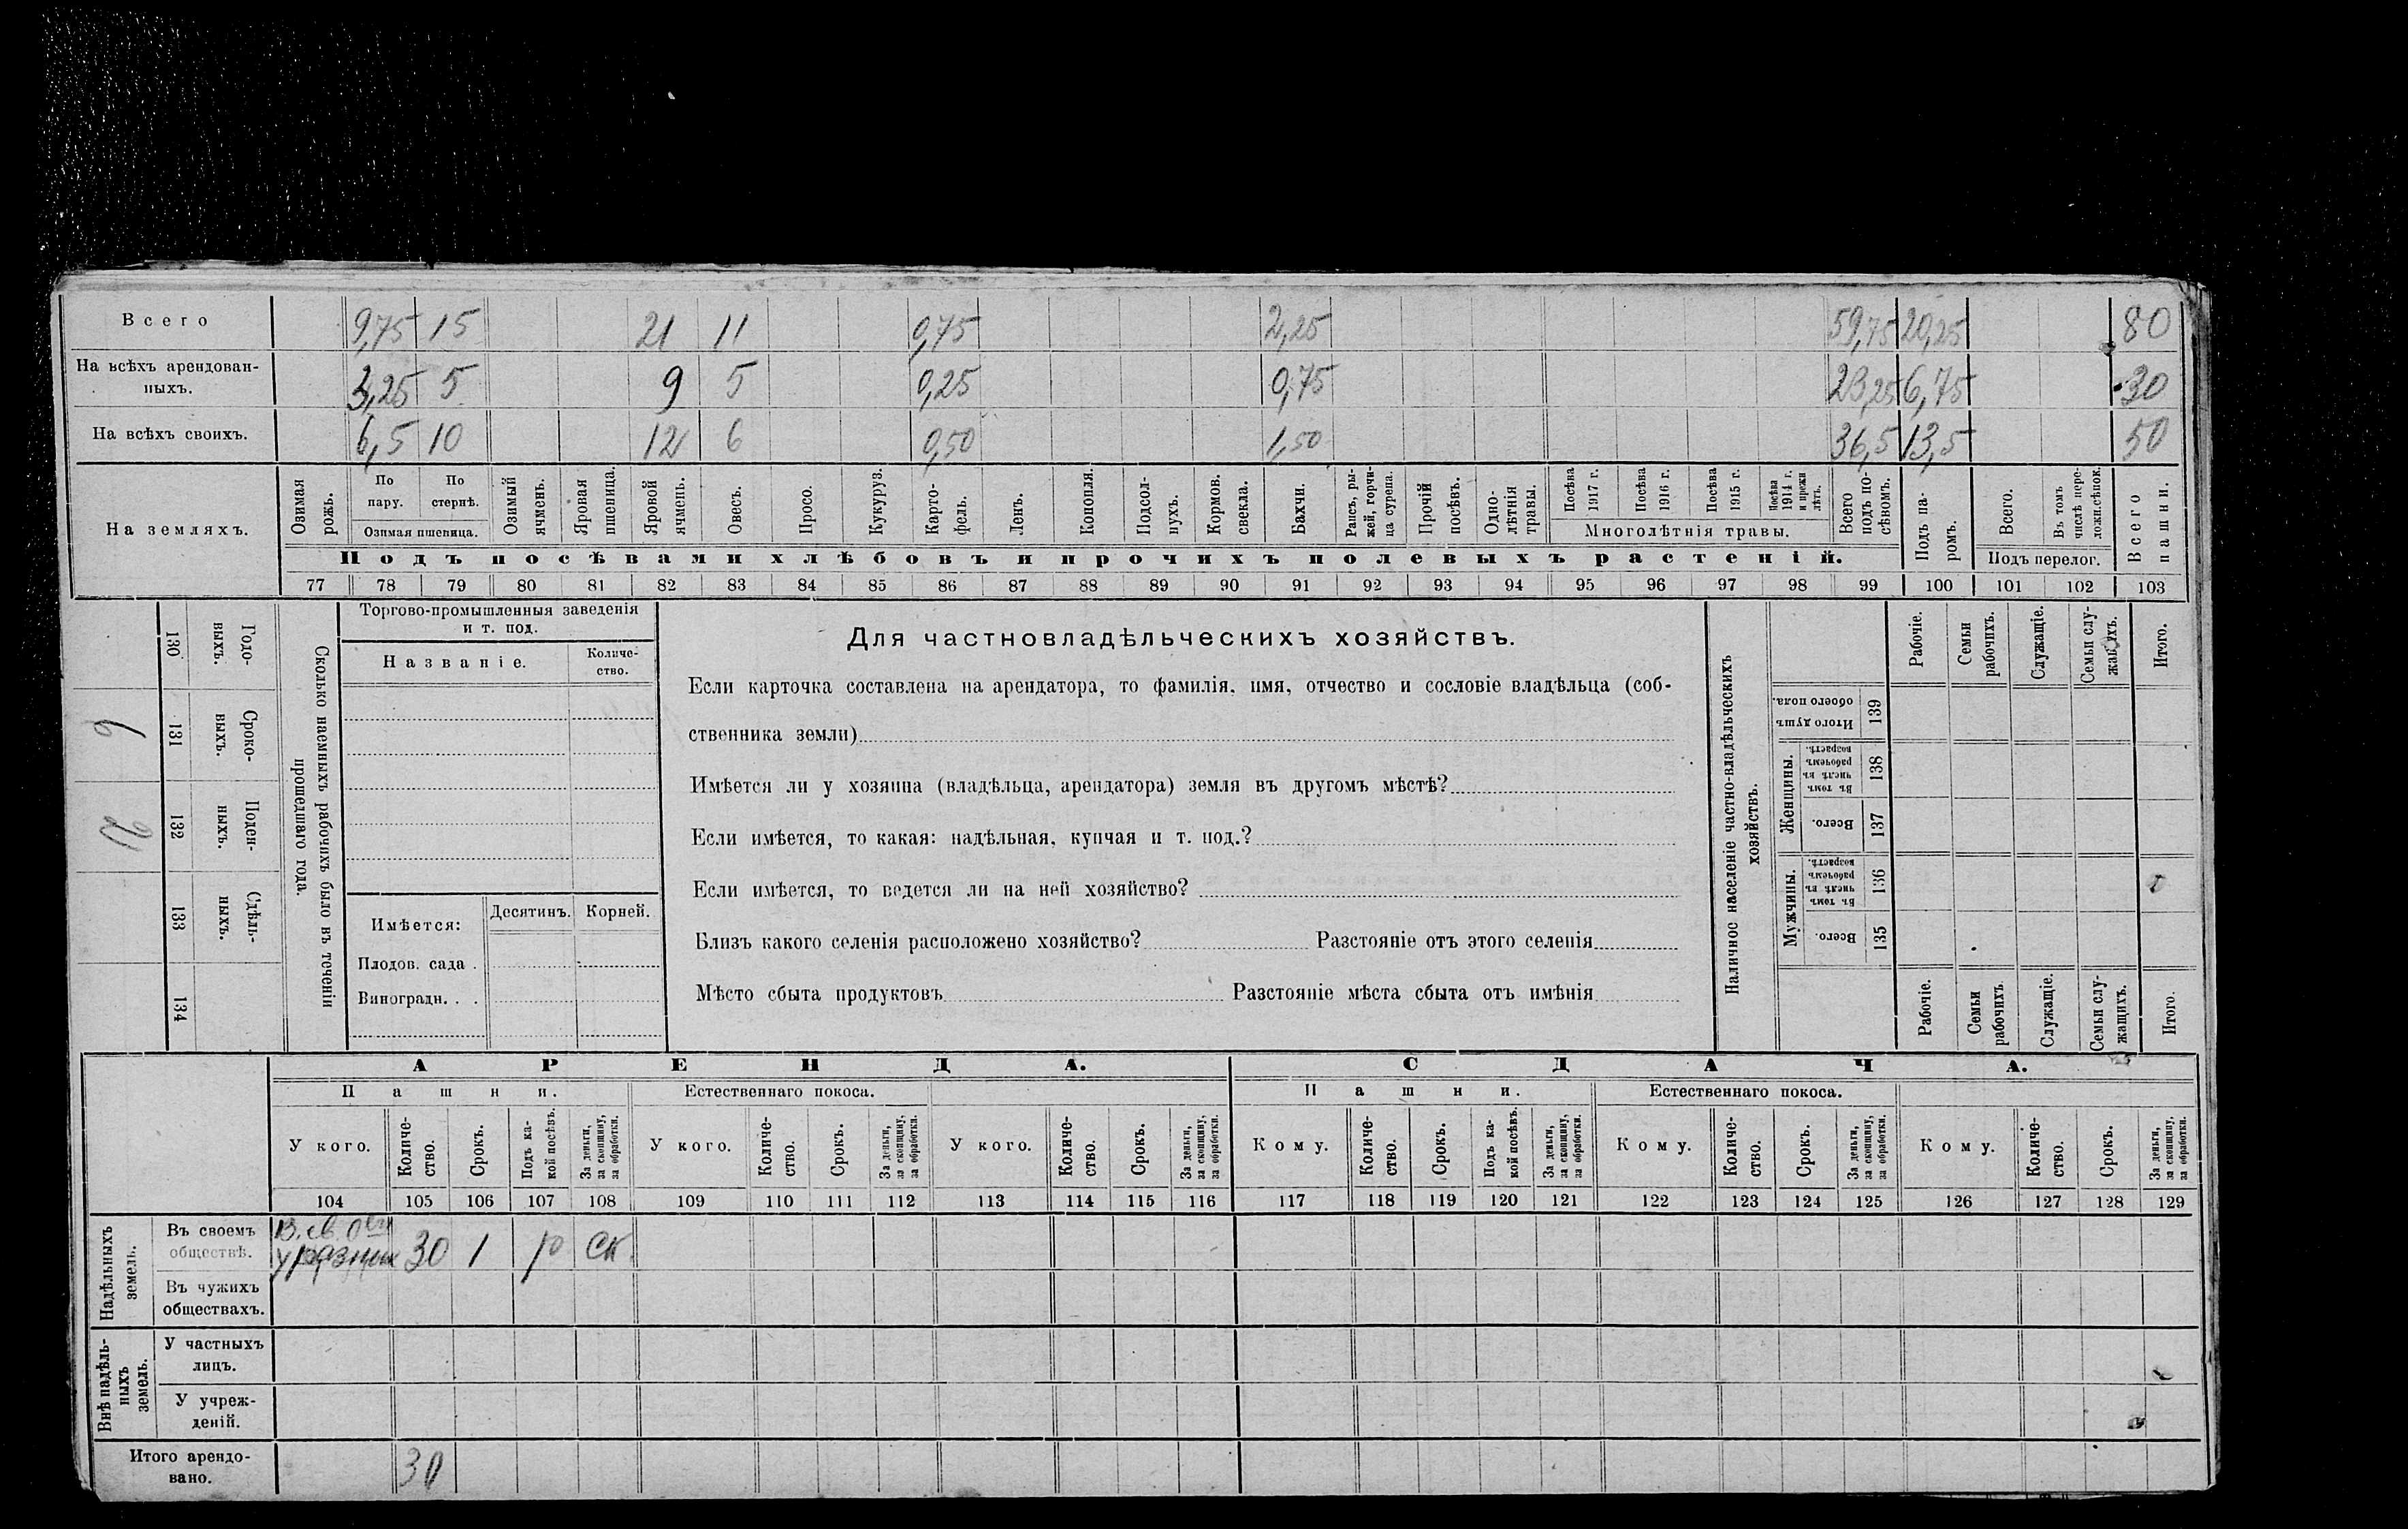 Всего 9,75 15 21 11 0,75 2,25 59,75 20,25 80
На всѣхъ арендован-
ныхъ. 3,25 5 9 5 0,25 0,75 23,25 6,75 30
На всѣхъ своихъ. 6,5 10 12 6 0,50 1,50 36,5 13,5 50
На земляхъ. Озимая рожь. По пару. По стернѣ. Озимая пшеница. Озимый ячмень. Яровая пшеница. Яровой ячмень. Овесъ. Просо. Кукуруз. Карто-фель. Ленъ. Конопля. Подсол-нухъ. Кормов. свекла. Бахчи. Рапсъ, ры-жей, горчи-ца сурепа. Прочій посѣвъ. Одно-лѣтнія травы. Посѣва 1917 г. Посѣва 1916 г. Посѣва 1915 г. Посѣва 1914 г. и прежн лѣтъ. Многолѣтнія травы. Всего подъ по-сѣвомъ. Подъ па-ромъ. Всего. Въ томъ числѣ пере-ложн.сѣнок. Подъ перелог. Всего пашни.
Подъ посѣвами хлѣбовъ и прочихъ полевыхъ растеній.
77 78 79 80 81 82 83 84 85 86 87 88 89 90 91 92 93 94 95 96 97 98 99 100 101 102 103
Сколько наемныхъ рабочихъ было въ теченіи
прошедшаго года.
Годо-выхъ. 130
Сроко-выхъ. 131 6
Поден-ныхъ. 132
Сдѣль-ныхъ. 133
134
Торгово-промышленныя заведенія
и т. под.
Названіе. Количе-ство.
Имѣется: Десятинъ. Корней.
Плодов. сада .
Виноградн. . .
Для частновладѣльческихъ хозяйствъ.
Если карточка составлена на арендатора, то фамилія, имя, отчество и сословіе владѣльца (соб-
ственника земли)
Имѣется ли у хозяина (владѣльца, арендатора) земля въ другомъ мѣстѣ?
Если имѣется, то какая: надѣльная, купчая и т. под.?
Если имѣется, то ведется ли на ней хозяйство?
Близъ какого селенія расположено хозяйство? Разстояніе отъ этого селенія
Мѣсто сбыта продуктовъ Разстояніе мѣста сбыта отъ имѣнія
Наличное населеніе частно-владѣльческихъ
хозяйствъ.
Рабочіе. Семьи рабочихъ. Служащіе. Семьи слу-жащихъ. Итого.
Итого душъ обоего пола. 139
Женщины. Въ томъ числѣ въ рабочемъ возрастѣ. 138
Всего. 137
Мужчины. Въ томъ числѣ въ рабочемъ возрастѣ. 136
Всего. 135
Рабочіе. Семьи рабочихъ. Служащіе. Семьи слу-жащихъ. Итого.
АРЕНДА. СДАЧА.
Пашни. Естественнаго покоса. Пашни. Естественнаго покоса.
У кого. Количе-ство. Срокъ. Подъ ка-кой посѣвъ. За деньги, за скопщину, за обработки. У кого. Количе-ство. Срокъ. За деньги, за скопщину, за обработки. У кого. Количе-ство. Срокъ. За деньги, за скопщину, за обработки. Кому. Количе-ство. Срокъ. Подъ ка-кой посѣвъ. За деньги, за скопщину, за обработки. Кому. Количе-ство. Срокъ. За деньги, за скопщину, за обработки. Кому. Количе-ство. Срокъ. За деньги, за скопщину, за обработки.
104 105 106 107 108 109 110 111 112 113 114 115 116 117 118 119 120 121 122 123 124 125 126 127 128 129
Надѣльныхъ земель.
Въ своемъ
обществѣ. В. св. у разных 30 1 р ск.
Въ чужихъ
обществахъ.
Внѣ надѣль-ныхъ земель.
У частныхъ
лицъ.
У учреж-
деній.
Итого арендо-
вано. 30